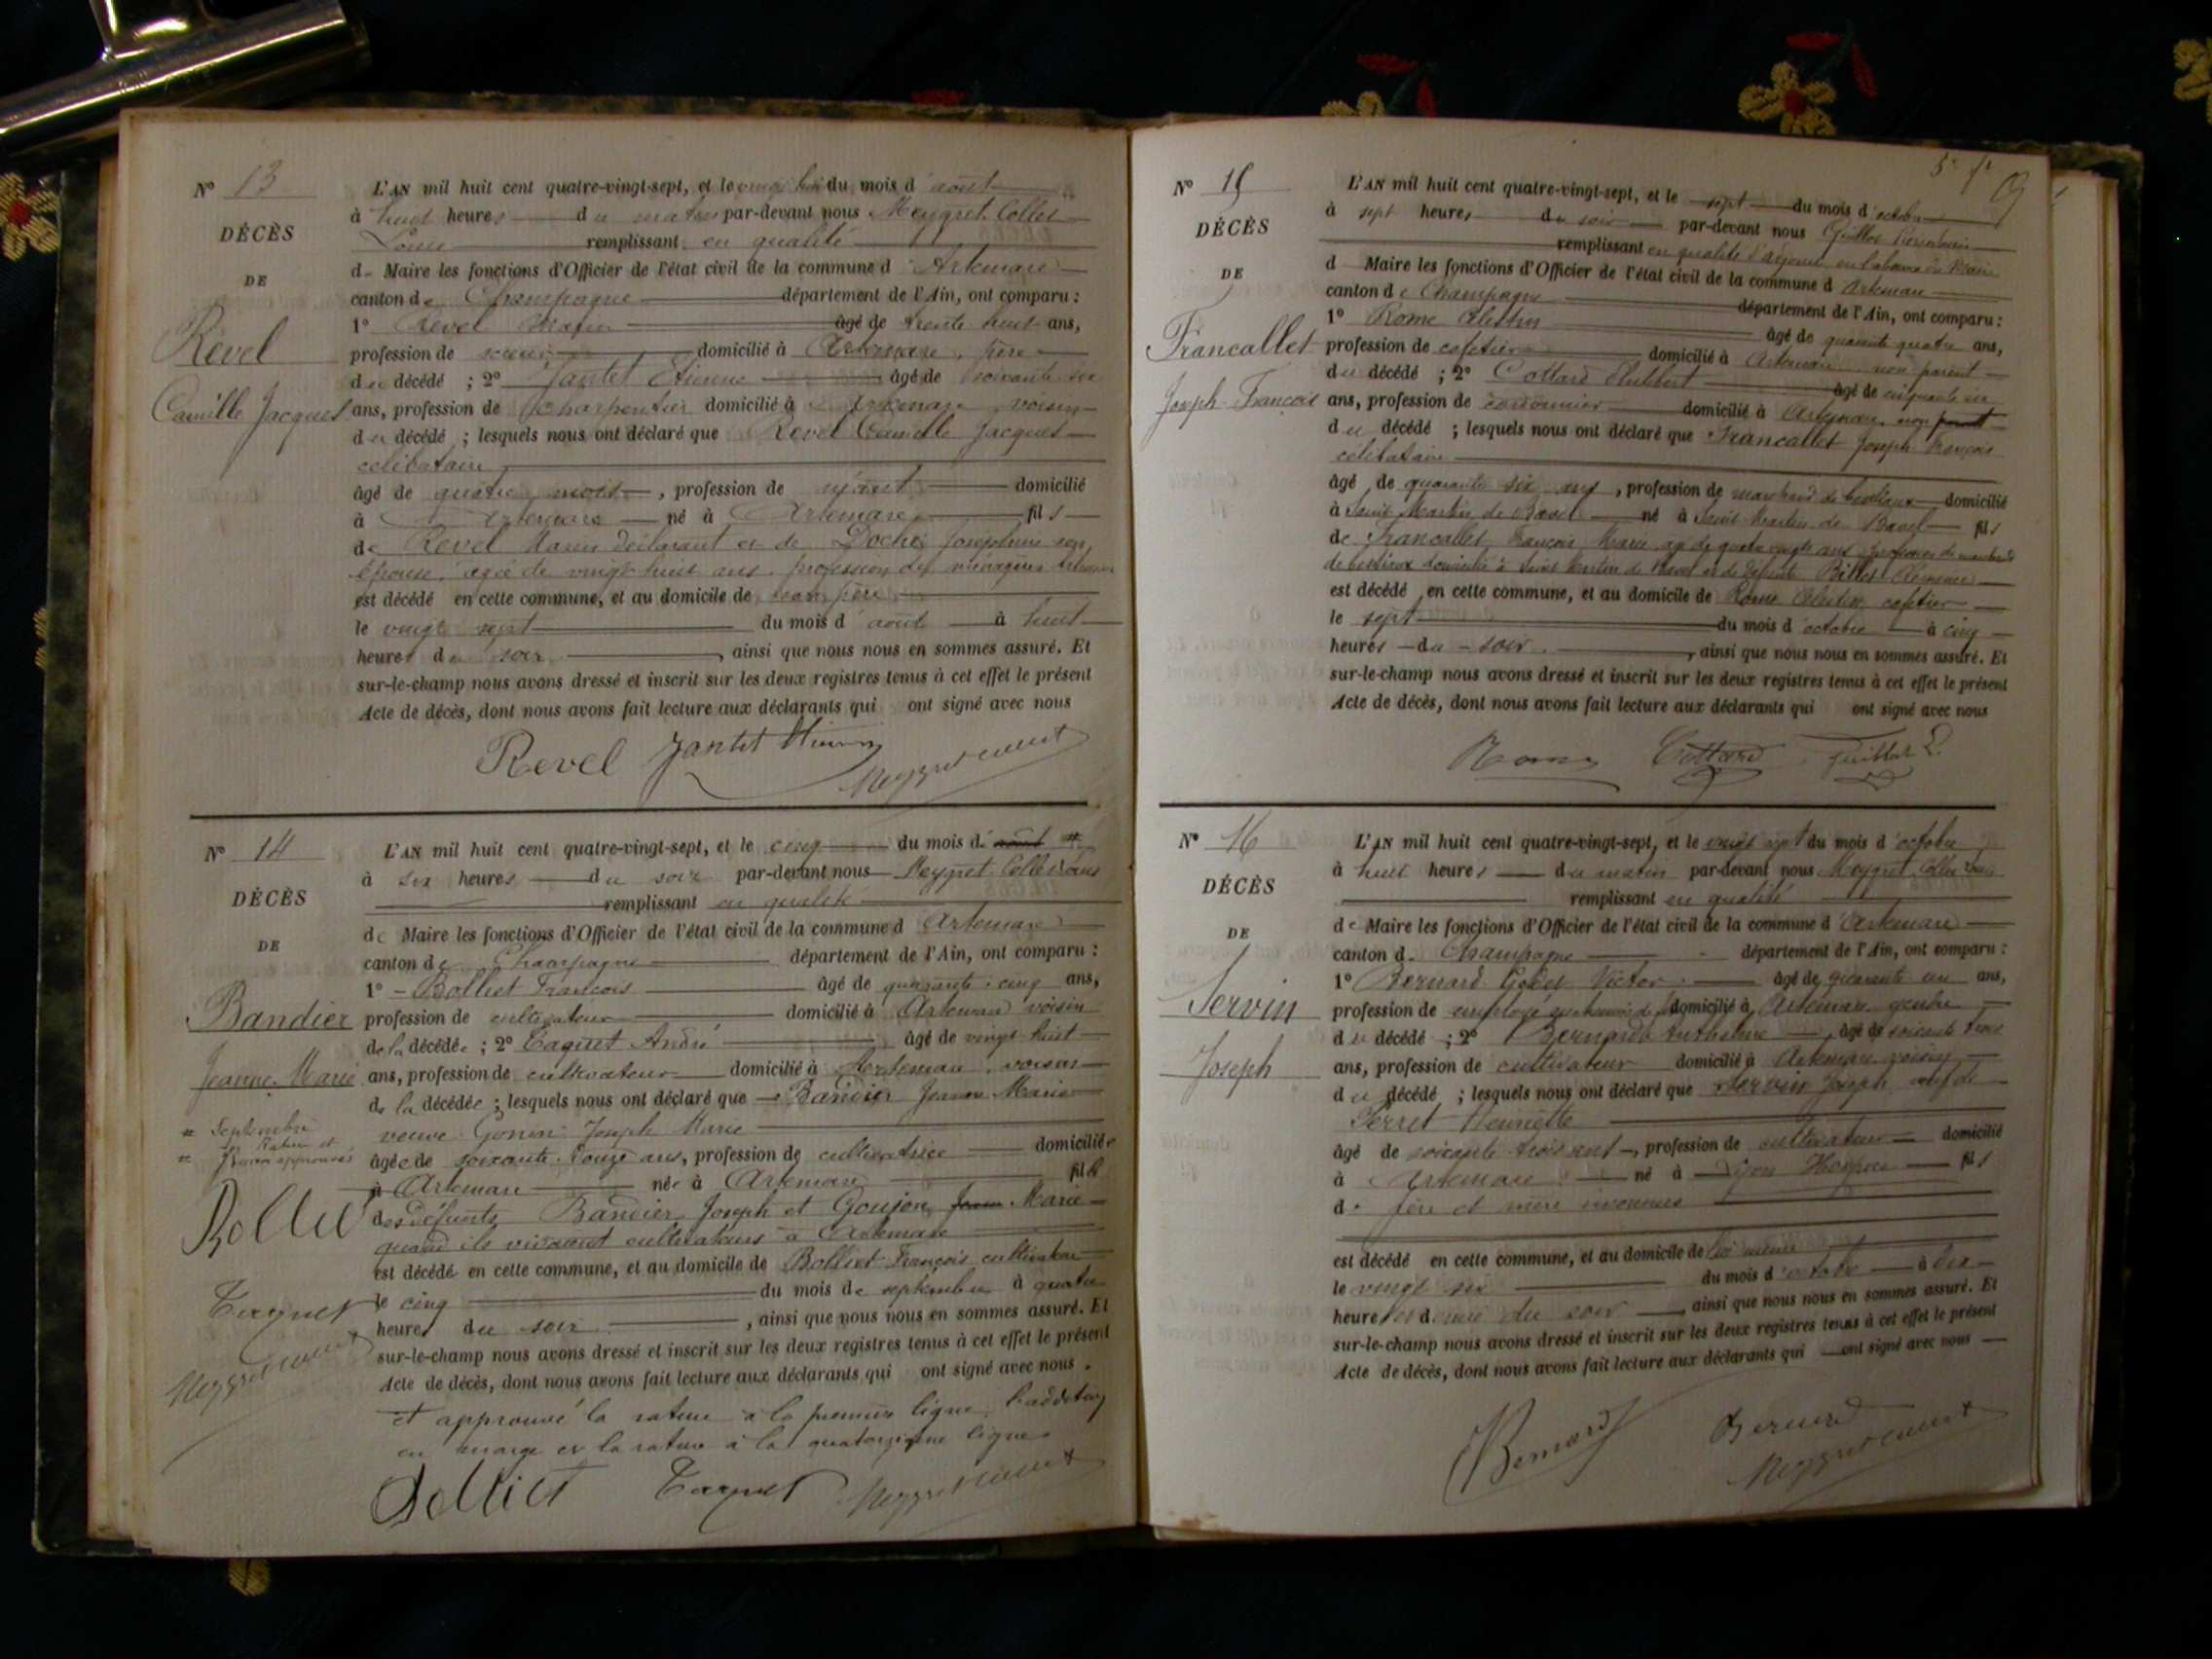 N° 13
DÉCÈS
DE
Revel
Camille Jacques
L'AN mil huit cent quatre-vingt-sept, et le vingt huit du mois d'août
à huit heures du matin par-devant nous Meygret Collet
Louis remplissant en qualité
de Maire les fonctions d'Officier de l'état civil de la commune d'Artemare
canton de Champagne département de l'Ain, ont comparu :
1° Revel Marin âgé de trente huit ans,
profession de domicilié à Artemare, père
du décédé ; 2° Jantet Etienne âgé de soixante six
ans, profession de charpentier domicilié à Artemare, voisin
du décédé ; lesquels nous ont déclaré que Revel Camille Jacques
célibataire
âgé de quatre mois, profession de néant domicilié
à Artemare né à Artemare fils
de Revel Marin déclarant et de Joséphine son
épouse, âgée de vingt huit ans, profession de ménagère
est décédé en cette commune, et au domicile de son père
le vingt sept du mois d'août à huit
heures du soir, ainsi que nous nous en sommes assuré. Et
sur-le-champ nous avons dressé et inscrit sur les deux registres tenus à cet effet le présent
Acte de décès, dont nous avons fait lecture aux déclarants qui ont signé avec nous
Revel Jantet Etienne Meygret Collet
N° 14
DÉCÈS
DE
Bandier
Jeanne Marie
# Septembre
Bolliet
Taquet
Meygret Collet
L'AN mil huit cent quatre-vingt-sept, et le cinq du mois d'août #
à six heures du soir par-devant nous Meygret Collet Louis
remplissant en qualité
de Maire les fonctions d'Officier de l'état civil de la commune d'Artemare
canton de Champagne département de l'Ain, ont comparu :
1° Bolliet François âgé de quarante cinq ans,
profession de cultivateur domicilié à Artemare voisin
de la décédée ; 2° Taquet André âgé de vingt huit
ans, profession de cultivateur domicilié à Artemare, voisin
de la décédée ; lesquels nous ont déclaré que Bandier Jeanne Marie
veuve Gonin Joseph Marie
âgée de soixante douze ans, profession de cultivatrice domiciliée
à Artemare née à Artemare fille
des défunts Bandier Joseph et Goujon Marie
quand ils vivaient cultivateurs à Artemare
est décédé en cette commune, et au domicile de Bolliet François cultivateur
le cinq du mois de septembre à quatre
heures du soir, ainsi que nous nous en sommes assuré. Et
sur-le-champ nous avons dressé et inscrit sur les deux registres tenus à cet effet le présent
Acte de décès, dont nous avons fait lecture aux déclarants qui ont signé avec nous.
et approuvé la rature à la première ligne, l'addition
en marge et la rature à la quatorzième ligne.
Bolliet Taquet Meygret Collet
N° 15
DÉCÈS
DE
Francallet
Joseph François
L'AN mil huit cent quatre-vingt-sept, et le sept du mois d'octobre
à sept heures du soir par-devant nous Guillot
remplissant en qualité d'adjoint en l'absence du Maire
d Maire les fonctions d'Officier de l'état civil de la commune d Artemare
canton de Champagne département de l'Ain, ont comparu :
1° Rome Célestin âgé de quarante quatre ans,
profession de cafetier domicilié à Artemare non parent
du décédé ; 2° Cottard âgé de cinquante six
ans, profession de cordonnier domicilié à Artemare, non parent
du décédé ; lesquels nous ont déclaré que Francallet Joseph François
célibataire
âgé de quarante six ans, profession de marchand de bestiaux domicilié
à Saint Martin de Bavel né à Saint Martin de Bavel fils
de Francallet François Marie âgé de quatre vingts ans profession de marchand
de bestiaux domicilié à Saint Martin de Bavel et de défunte Billet Clémence
est décédé en cette commune, et au domicile de Rome Célestin, cafetier
le sept du mois d'octobre à cinq
heures du soir, ainsi que nous nous en sommes assuré. Et
sur-le-champ nous avons dressé et inscrit sur les deux registres tenus à cet effet le présent
Acte de décès, dont nous avons fait lecture aux déclarants qui ont signé avec nous
Rome Cottard Guillot
N° 16
DÉCÈS
DE
Servin
Joseph
L'AN mil huit cent quatre-vingt-sept, et le vingt sept du mois d'octobre
à huit heures du matin par-devant nous Meygret Collet Louis
remplissant en qualité
de Maire les fonctions d'Officier de l'état civil de la commune d'Artemare
canton de Champagne département de l'Ain, ont comparu :
1° Bernard Victor âgé de quarante un ans,
profession de employé au chemin de fer domicilié à Artemare gendre
du décédé ; 2° Bernard Anthelme, âgé de soixante trois
ans, profession de cultivateur domicilié à Artemare voisin
du décédé ; lesquels nous ont déclaré que Servin Joseph veuf de
Perret
âgé de soixante trois ans, profession de cultivateur domicilié
à Artemare né à Lyon Hospice fils
de père et mère inconnus
est décédé en cette commune, et au domicile de lui même
le vingt six du mois d'octobre à dix
heures et demie du soir, ainsi que nous nous en sommes assuré. Et
sur-le-champ nous avons dressé et inscrit sur les deux registres tenus à cet effet le présent
Acte de décès, dont nous avons fait lecture aux déclarants qui ont signé avec nous
Bernard Bernard
Meygret Collet